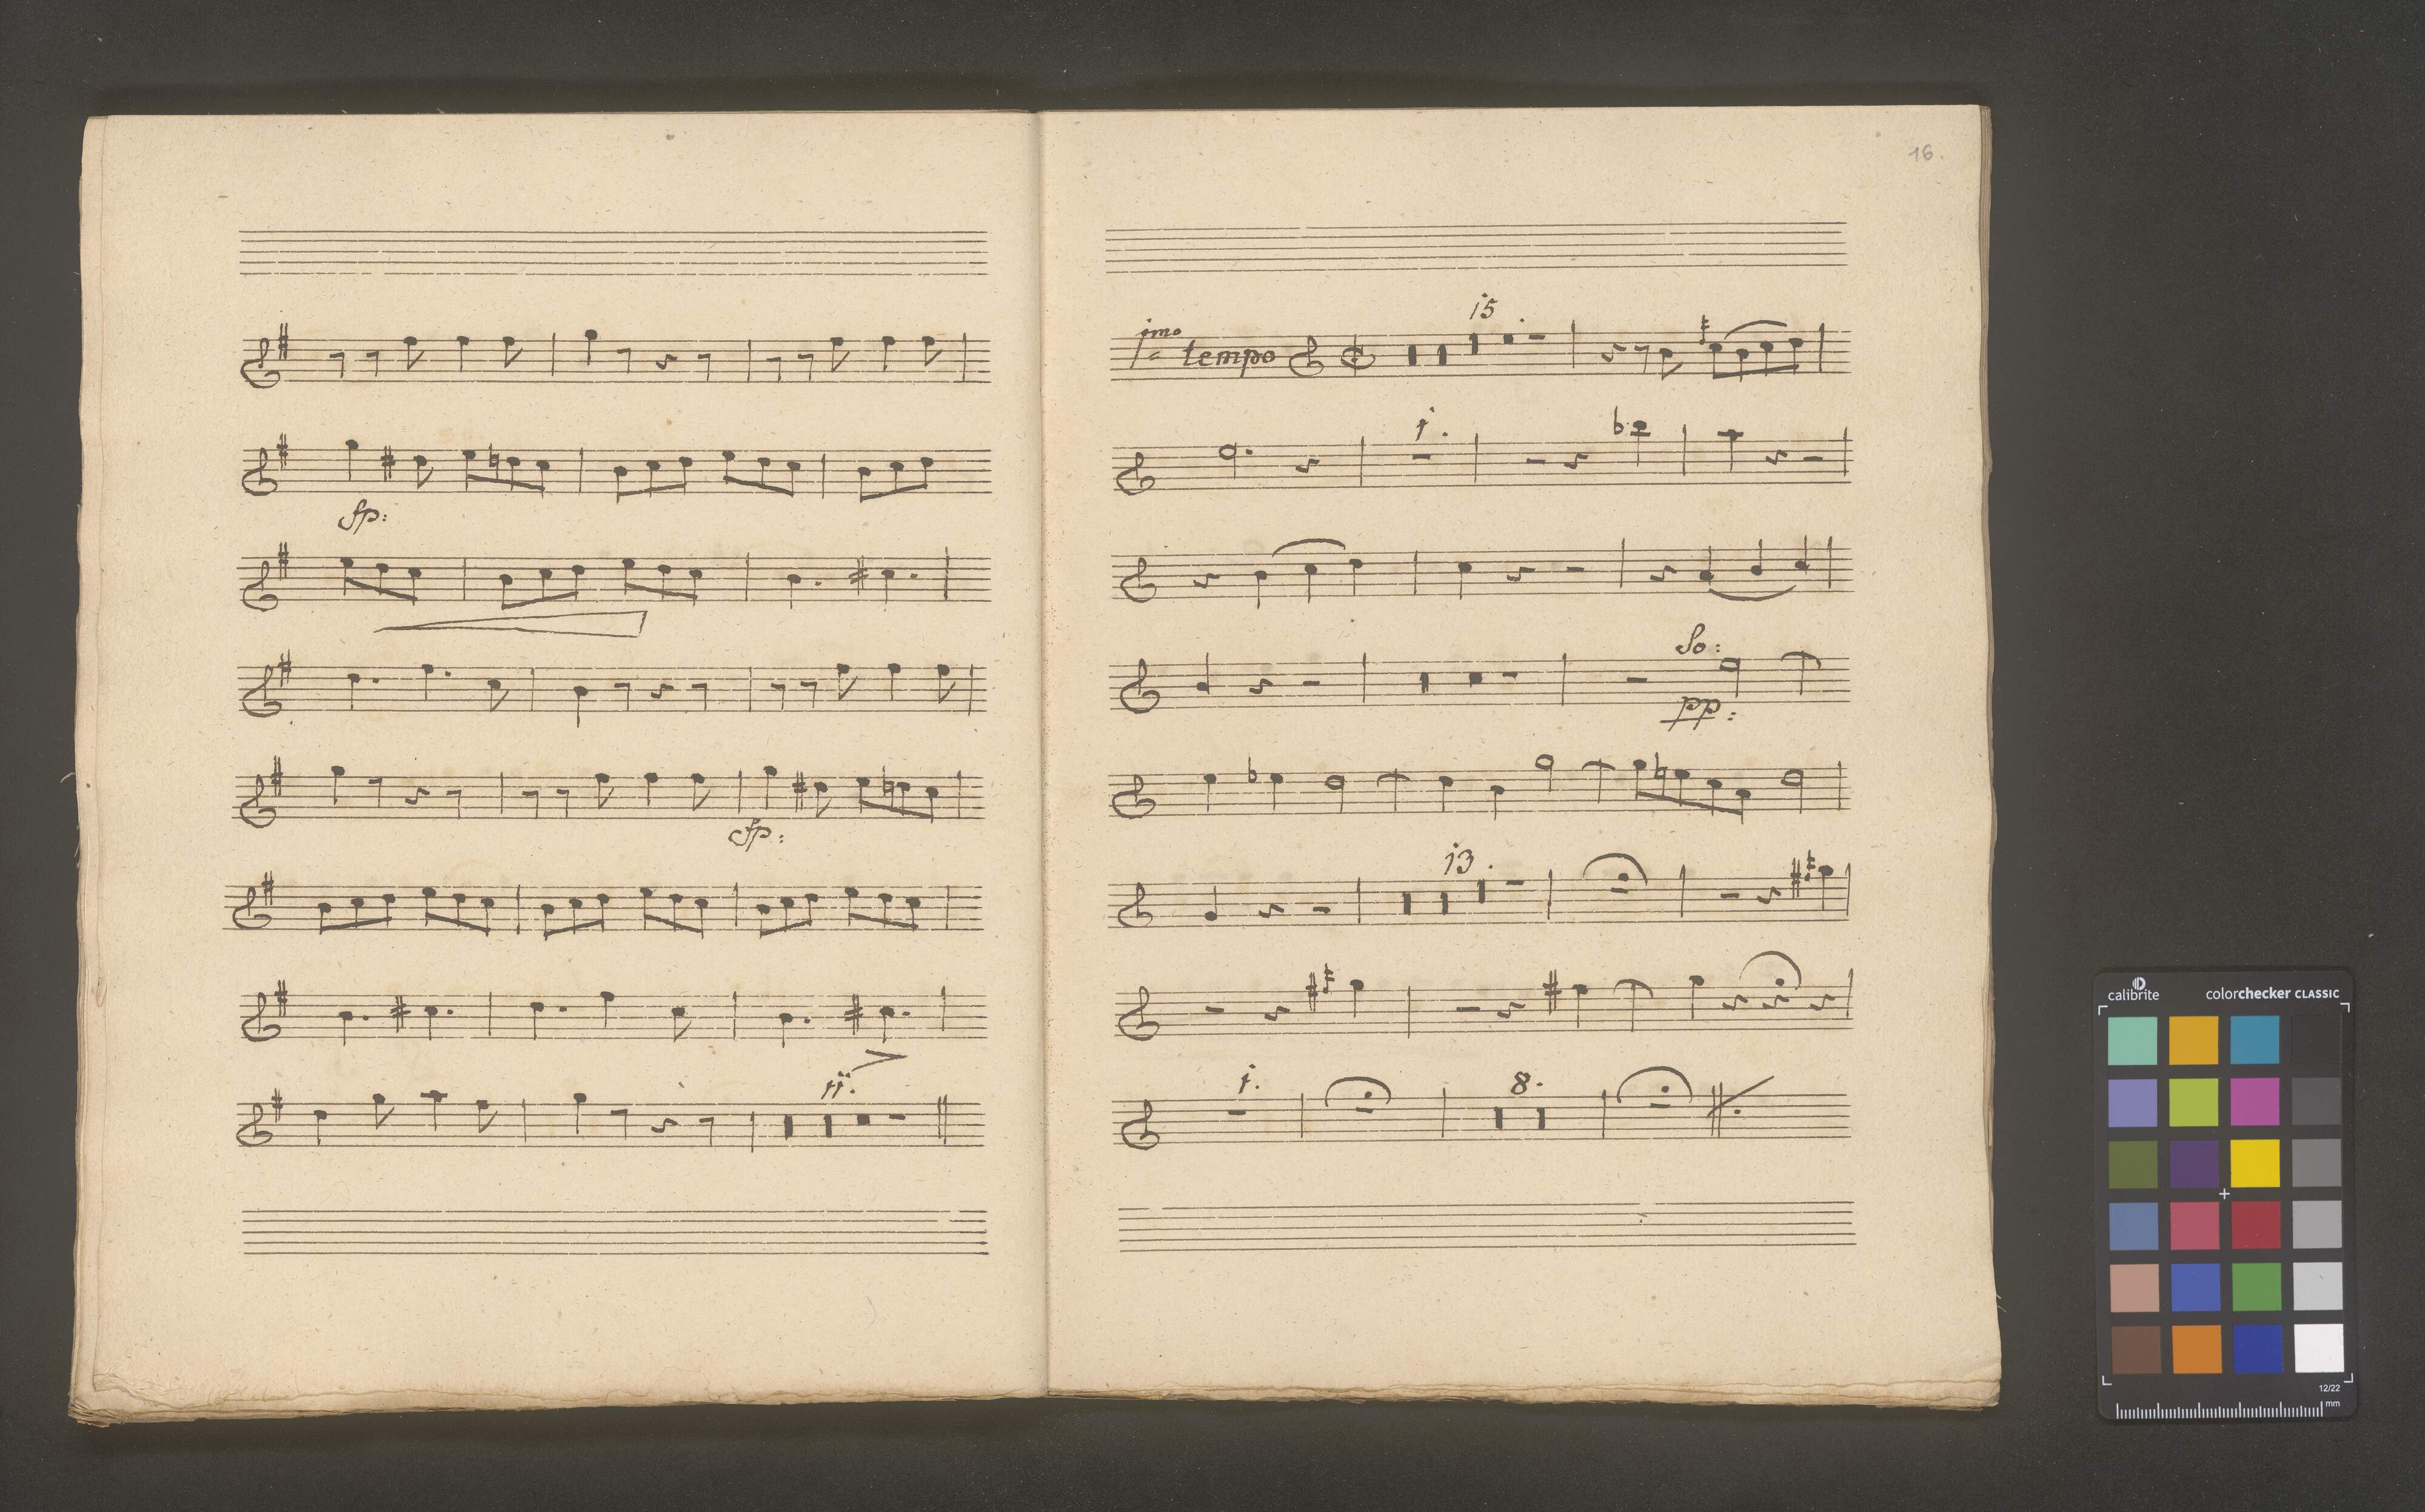 sfp:
sfp:
11.
16.
1mo tempo 15.
1.
So:
pp:
13.
1. 8.
calibrite colorchecker CLASSIC
12/22
mm